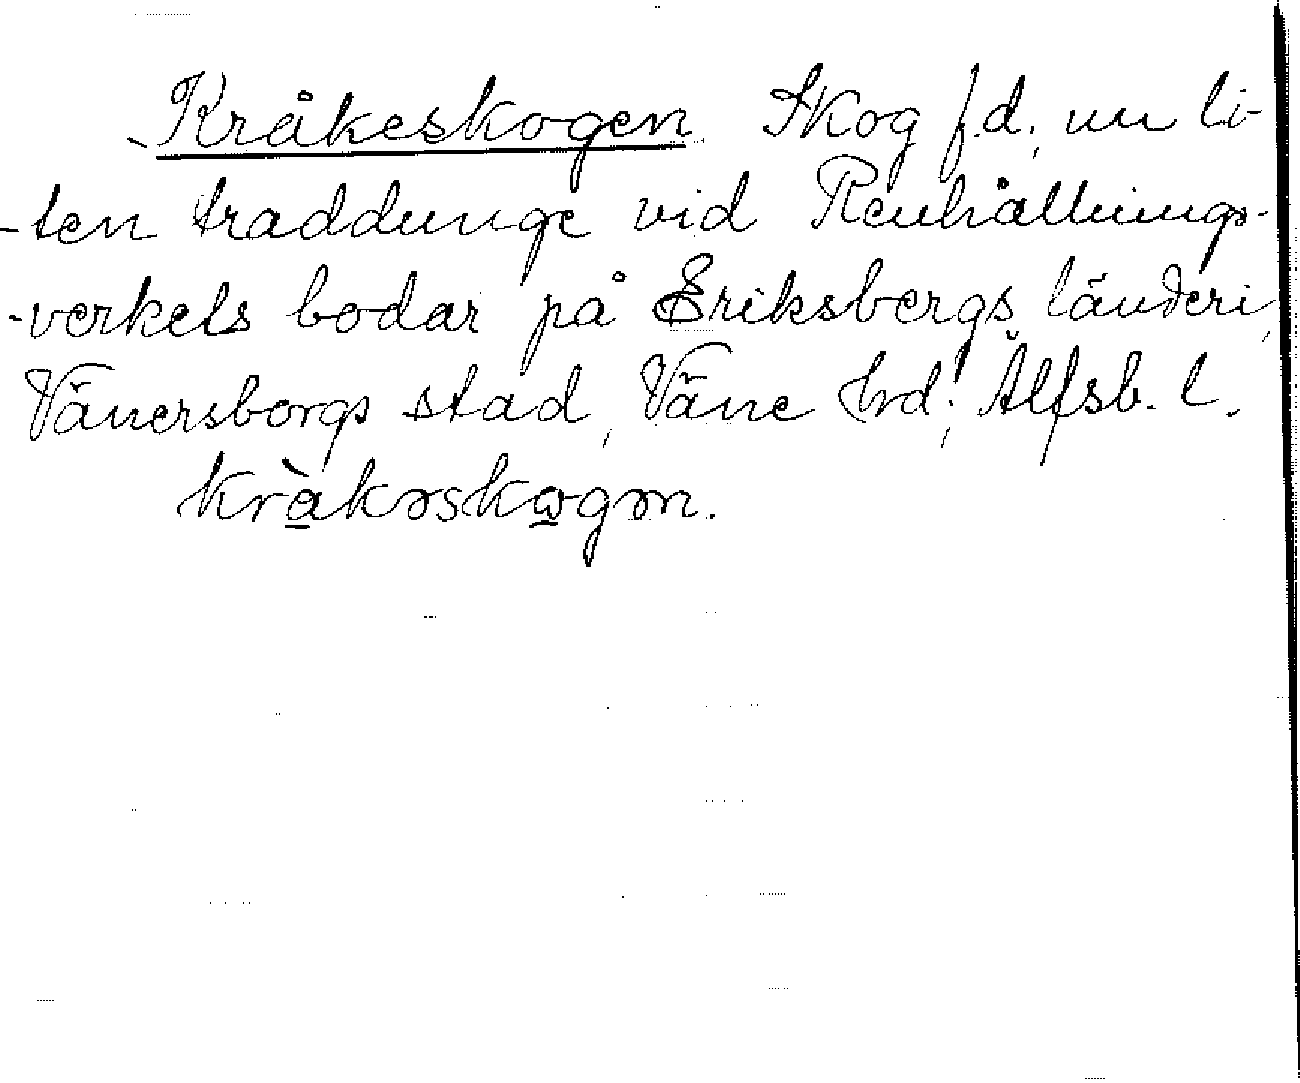 Kråkeskogen Skog f.d., nu li-
-ten träddunge vid Renhållnings-
-verkels bodar på Eriksbergs länderi,
Vänersborgs stad, Väne hrd, Älfsb. l.
kràkəskωgən.